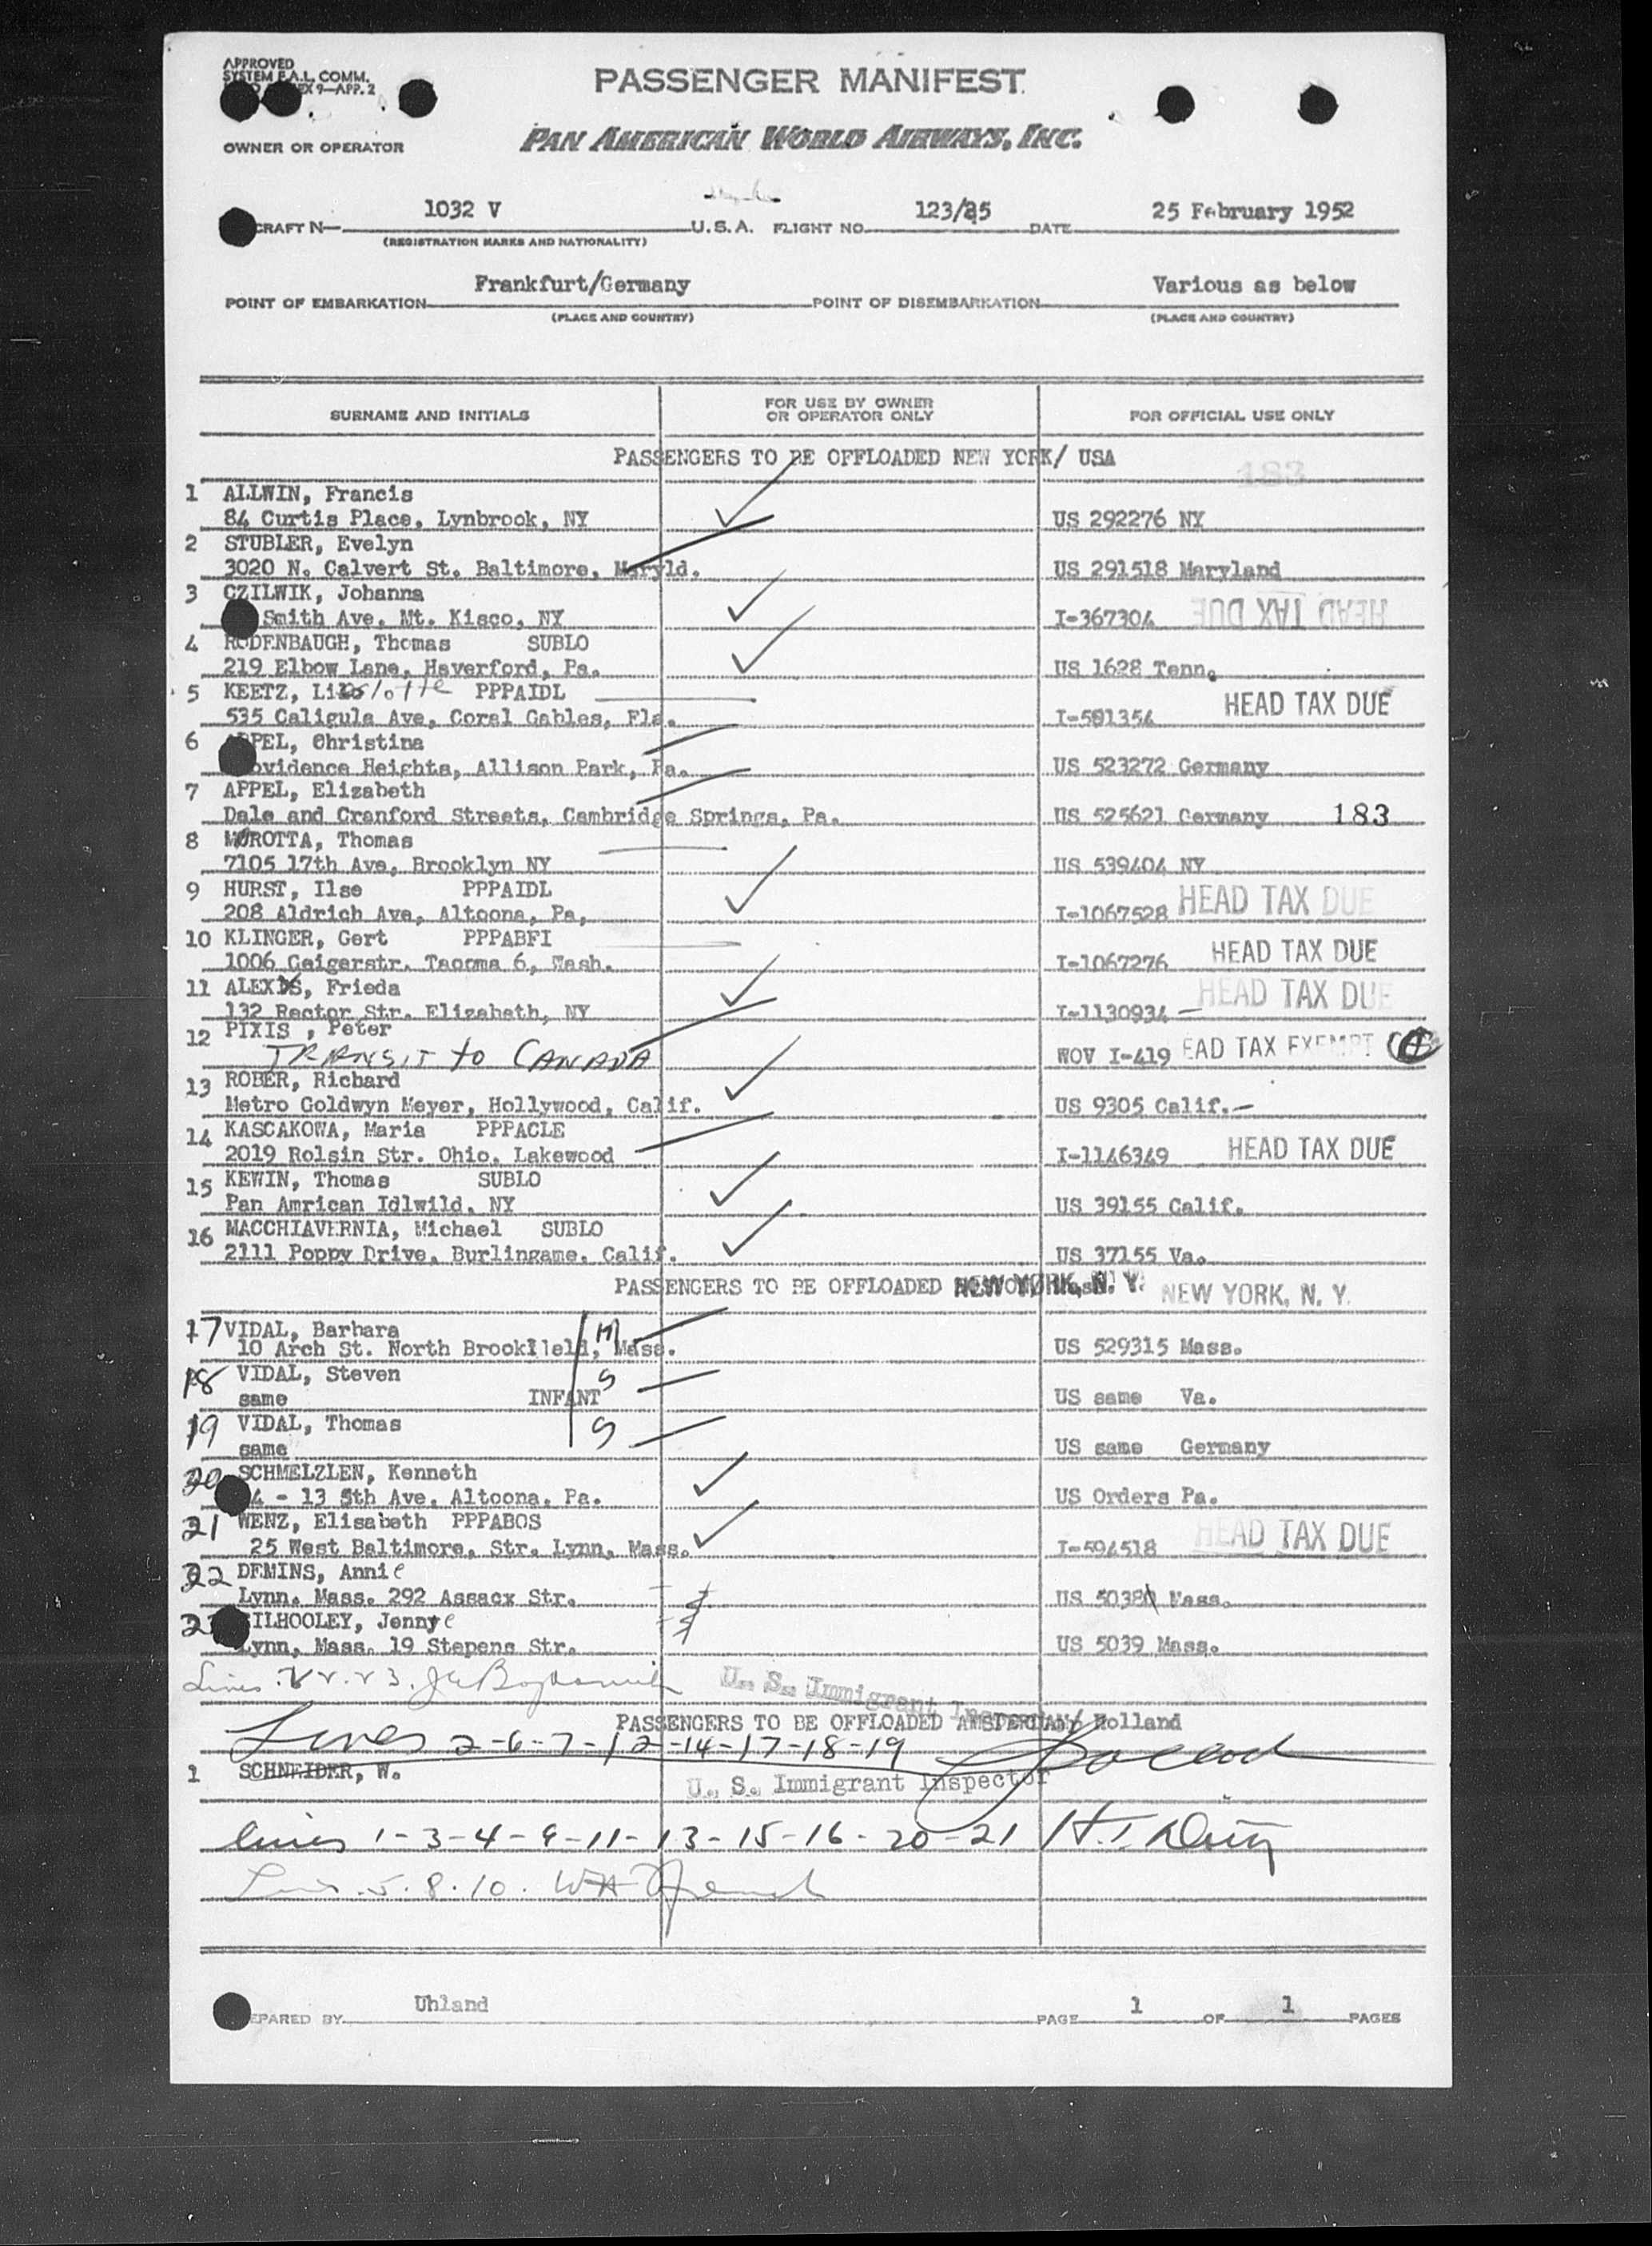 APPROVED
SYSTEM F.A.L. COMM.
EX 9—APP. 2
PASSENGER MANIFEST
OWNER OR OPERATOR
PAN AMERICAN WORLD AIRWAYS, INC.
CRAFT N— 1032 V U.S.A. FLIGHT NO. 123/85 DATE 25 February 1952
(REGISTRATION MARKS AND NATIONALITY)
POINT OF EMBARKATION Frankfurt/Germany POINT OF DISEMBARKATION Various as below
(PLACE AND COUNTRY) (PLACE AND COUNTRY)
SURNAME AND INITIALS FOR USE BY OWNER OR OPERATOR ONLY FOR OFFICIAL USE ONLY
PASSENGERS TO BE OFFLOADED NEW YORK/ USA
183
1 ALLWIN, Francis
84 Curtis Place, Lynbrook, NY US 292276 NY
2 STUBLER, Evelyn
3020 N. Calvert St. Baltimore, Maryld. US 291518 Maryland
3 CZILWIK, Johanna
Smith Ave. Mt. Kisco, NY I-367304 HEAD TAX DUE
4 RODENBAUGH, Thomas SUBLO
219 Elbow Lane, Haverford, Pa. US 1628 Tenn.
5 KEETZ, Liselotte PPPAIDL
535 Caligula Ave, Coral Gables, Fla. I-501354 HEAD TAX DUE
6 APPEL, Christina
ovidence Heights, Allison Park, Pa. US 523272 Germany
7 APPEL, Elizabeth
Dale and Cranford Streets, Cambridge Springs, Pa. US 525621 Germany 183
8 MOROTTA, Thomas
7105 17th Ave, Brooklyn NY US 539404 NY
9 HURST, Ilse PPPAIDL
208 Aldrich Ave, Altoona, Pa, I-1067528 HEAD TAX DUE
10 KLINGER, Gert PPPABFI
1006 Geigerstr. Tacoma 6, Wash. I-1067276 HEAD TAX DUE
11 ALEXIS, Frieda
132 Rector Str. Elizabeth, NY I-1130934 — HEAD TAX DUE
12 PIXIS , Peter
TRANSIT to CANADA WOV I-419 EAD TAX EXEMPT
13 ROBER, Richard
Metro Goldwyn Meyer, Hollywood, Calif. US 9305 Calif.—
14 KASCAKOWA, Maria PPPACLE
2019 Rolsin Str. Ohio. Lakewood I-1146349 HEAD TAX DUE
15 KEWIN, Thomas SUBLO
Pan Amrican Idlwild, NY US 39155 Calif.
16 MACCHIAVERNIA, Michael SUBLO
2111 Poppy Drive, Burlingame, Calif. US 37155 Va.
PASSENGERS TO BE OFFLOADED NEW YORK, N. Y. NEW YORK, N. Y.
17 VIDAL, Barbara M
10 Arch St. North Brookfield, Mass. US 529315 Mass.
18 VIDAL, Steven S
same INFANT US same Va.
19 VIDAL, Thomas S
same US same Germany
20 SCHMELZLEN, Kenneth
4 - 13 5th Ave. Altoona. Pa. US Orders Pa.
21 WENZ, Elisabeth PPPABOS
25 West Baltimore, Str. Lynn, Mass. I-594518 HEAD TAX DUE
22 DEMINS, Annie
Lynn. Mass. 292 Assacx Str. US 5038 Mass.
23 GILHOOLEY, Jennye
Lynn, Mass. 19 Stepens Str. US 5039 Mass.
Lines
U. S. Immigrant Inspector
PASSENGERS TO BE OFFLOADED AMSTERDAM/ Holland
Lines 2-6-7-12-14-17-18-19
1 SCHNEIDER, W.
U. S. Immigrant Inspector
lines 1-3-4-9-11-13-15-16-20-21
Lines 5.8.10.
EPARED BY Uhland PAGE 1 OF 1 PAGES